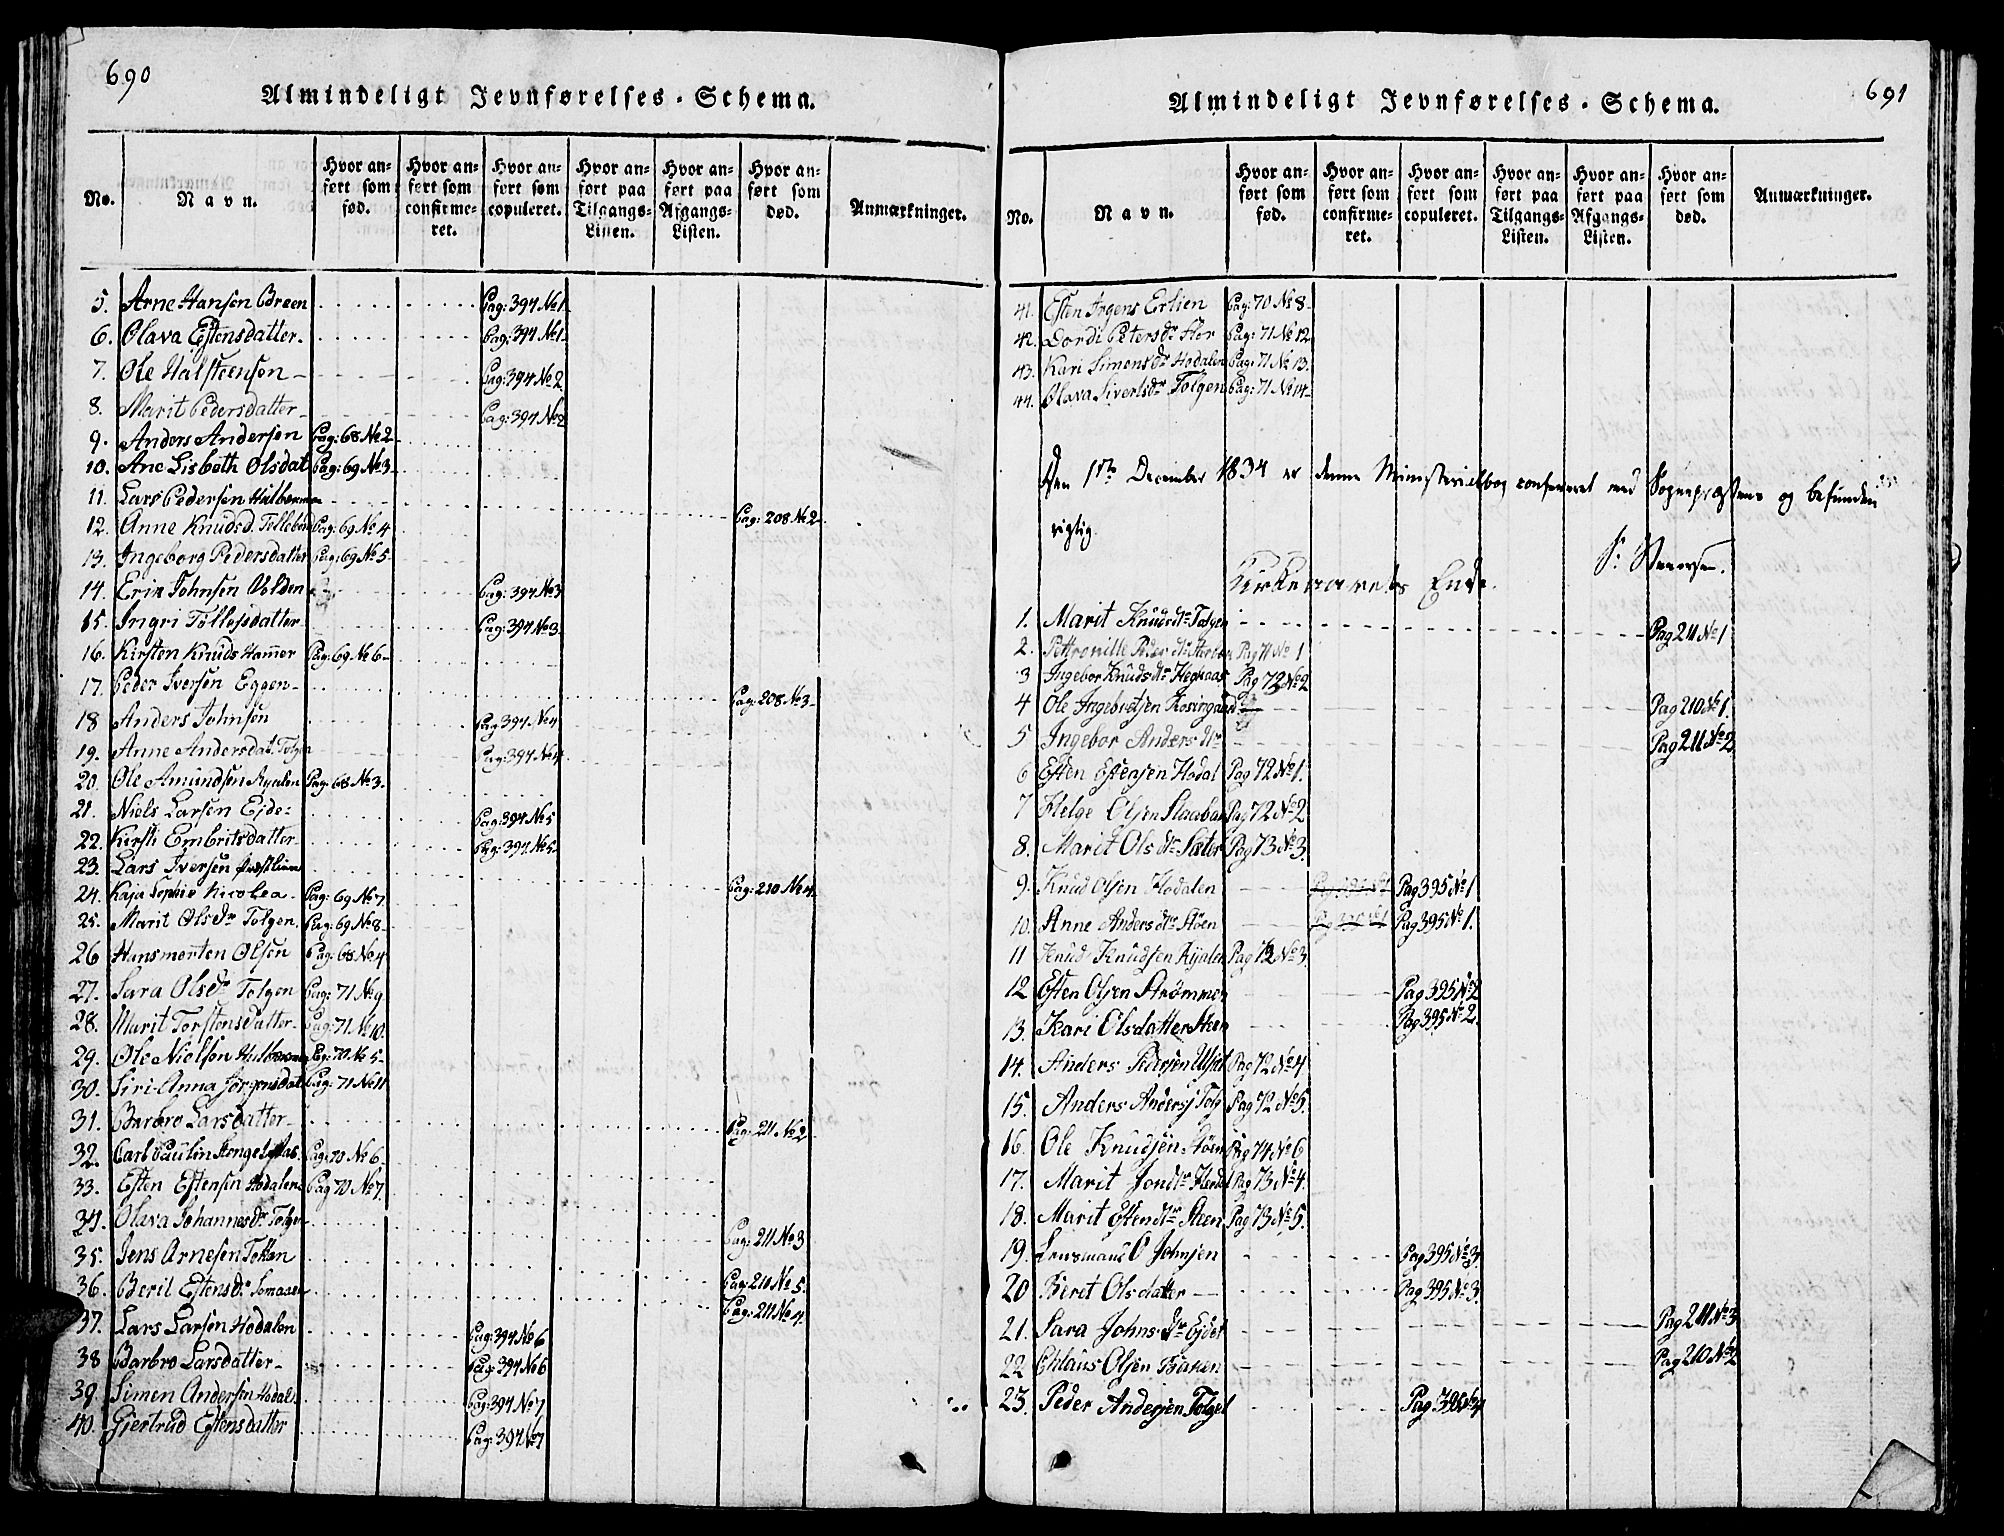 690
Almindeligt Jevnførelses-Schema.
No.
Navn.
Hvor an-
ført som
fød.
Hvor an-
ført som
confirme-
ret.
Hvor an-
ført som
copuleret.
Hvor an-
ført paa
Tilgangs-
Listen.
Hvor an-
ført paa
Afgangs-
Listen.
Hvor an-
ført som
død.
Anmærkninger.
5. Arne Hansen Breen Pag: 394 No 1
6. Olava Estensdatter Pag: 394 No 1
7. Ole Halsteensen Pag: 394 No 2
8. Marit Pedersdatter Pag: 394 No 2
9. Anders Andersen Pag: 68 No 2
10. Ane Lisbeth Olsdat Pag: 69 No 3
11. Lars Pedersen Pag: 208 No 2
12. Anne Knudsd. Pag: 69 No 4
13. Ingeborg Pedersdatter Pag: 69 No 5
14. Erik Johnsen Volden Pag: 394 No 3
15. Ingri Tollefsdatter Pag: 394 No 3
16. Kirsten Knuds Hamer Pag: 69 No 6
17. Peder Iversen Eggen Pag: 208 No 3
18 Anders Johnsen Pag 394 No 4
19. Anne Andersdat. Tolgen Pag: 394 No 4
20. Ole Amundsen Pag: 68 No 3
21. Niels Larsen Eide Pag: 394 No 5
22. Kirsti Embritsdatter Pag: 394 No 5
23. Lars Iversen Pag: 210 No 4
24. Kaja Sophie Nicolea Pag: 69 No 7
25. Marit Olsdr Tolgen Pag: 69 No 8
26 Hansmorten Olsen Pag: 68 No 4
27. Sara Olsdr Tolgen Pag: 71 No 9
28. Marit Torstensdatter Pag: 71 No 10
29. Ole Nielsen Pag: 70 No 5
30. Siri Anna Jörgensdat Pag: 71 No 11
31. Barbro Larsdatter Pag: 211 No 2
32. Carl Paulin Pag: 70 No 6
33. Esten Estensen Hodalen Pag 70 No 7
34. Olava Johannesdr Tolgen Pag: 211 No 3
35. Jens Arnesen Pag: 210 No 5
36. Beril Estensdr Pag: 211 No 4
37. Lars Larsen Hodalen Pag: 394 No 6
38 Barbro Larsdatter Pag: 394 No 6
39. Simen Andersen Hodal Pag: 394 No 7
40. Gjertrud Estensdatter Pag: 394 No 7
691
Almindeligt Jevnførelses-Schema.
No.
Navn.
Hvor an-
ført som
fød.
Hvor an-
ført som
confirme-
ret.
Hvor an-
ført som
copuleret.
Hvor an-
ført paa
Tilgangs-
Listen.
Hvor an-
ført paa
Afgangs-
Listen.
Hvor an-
ført som
død.
Anmærkninger.
41. Esten Jrgens Erlien Pag: 70 No 8
42. Dordi Petersdr Pag: 71 No 12
43. Kari Simensdr Hodalen Pag: 71 No 13
44. Olava Sivertsdr Tolgen Pag: 71 No 14
Den 1ste December 1834 er denne Ministerialbog confereret med Sognepræstens og befunden
rigtig.
Kirkeaarets Ende.
1. Marit Knudsdr Tolgen Pag 211 No 1
2. Petronille Peder dtr Pag 71 No 1
3 Ingebor Knudsdtr Pag 72 No 2
4 Ole Ingebretsen Pag 210 No 1.
5 Ingebor Anders dtr Pag 211 No 2
6 Esten Estensen Hodal Pag 72 No 1.
7 Helge Olsen Pag 72 No 2
8. Marit Ols dtr Pag 73 No 3
9. Knud Olsen Hodalen Pag 395 No 1
10. Anne Anders dtr Pag 395 No 1.
11 Knud Knudsen Pag 72 No 3.
12 Esten Olsen Strømmen Pag 395 No 2
13. Kari Olsdatter Steen Pag 395 No 2.
14. Anders Pedersen Pag 72 No 4
15. Anders Andersj Tolg Pag 72 No 5.
16. Ole Knudsen Pag 74 No 6
17. Marit Jondtr Pag 73 No 4.
18. Marit Estendtr Steen Pag 73 No 5.
19. O Johnsen Pag 395 No 3.
20 Beret Olsdatter Pag 395 No 3.
21. Sara Johnsdr Eidet Pag 211 No 3
22. Olsen Bakken Pag 210 No 2
23. Peder Andersen Pag 395 No 4